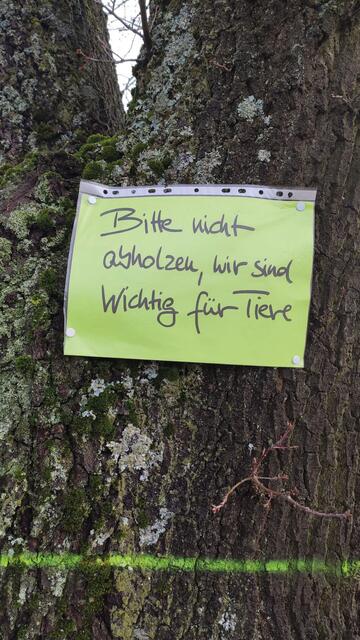 Bitte nicht
abholzen, wir sind
Wichtig für Tiere